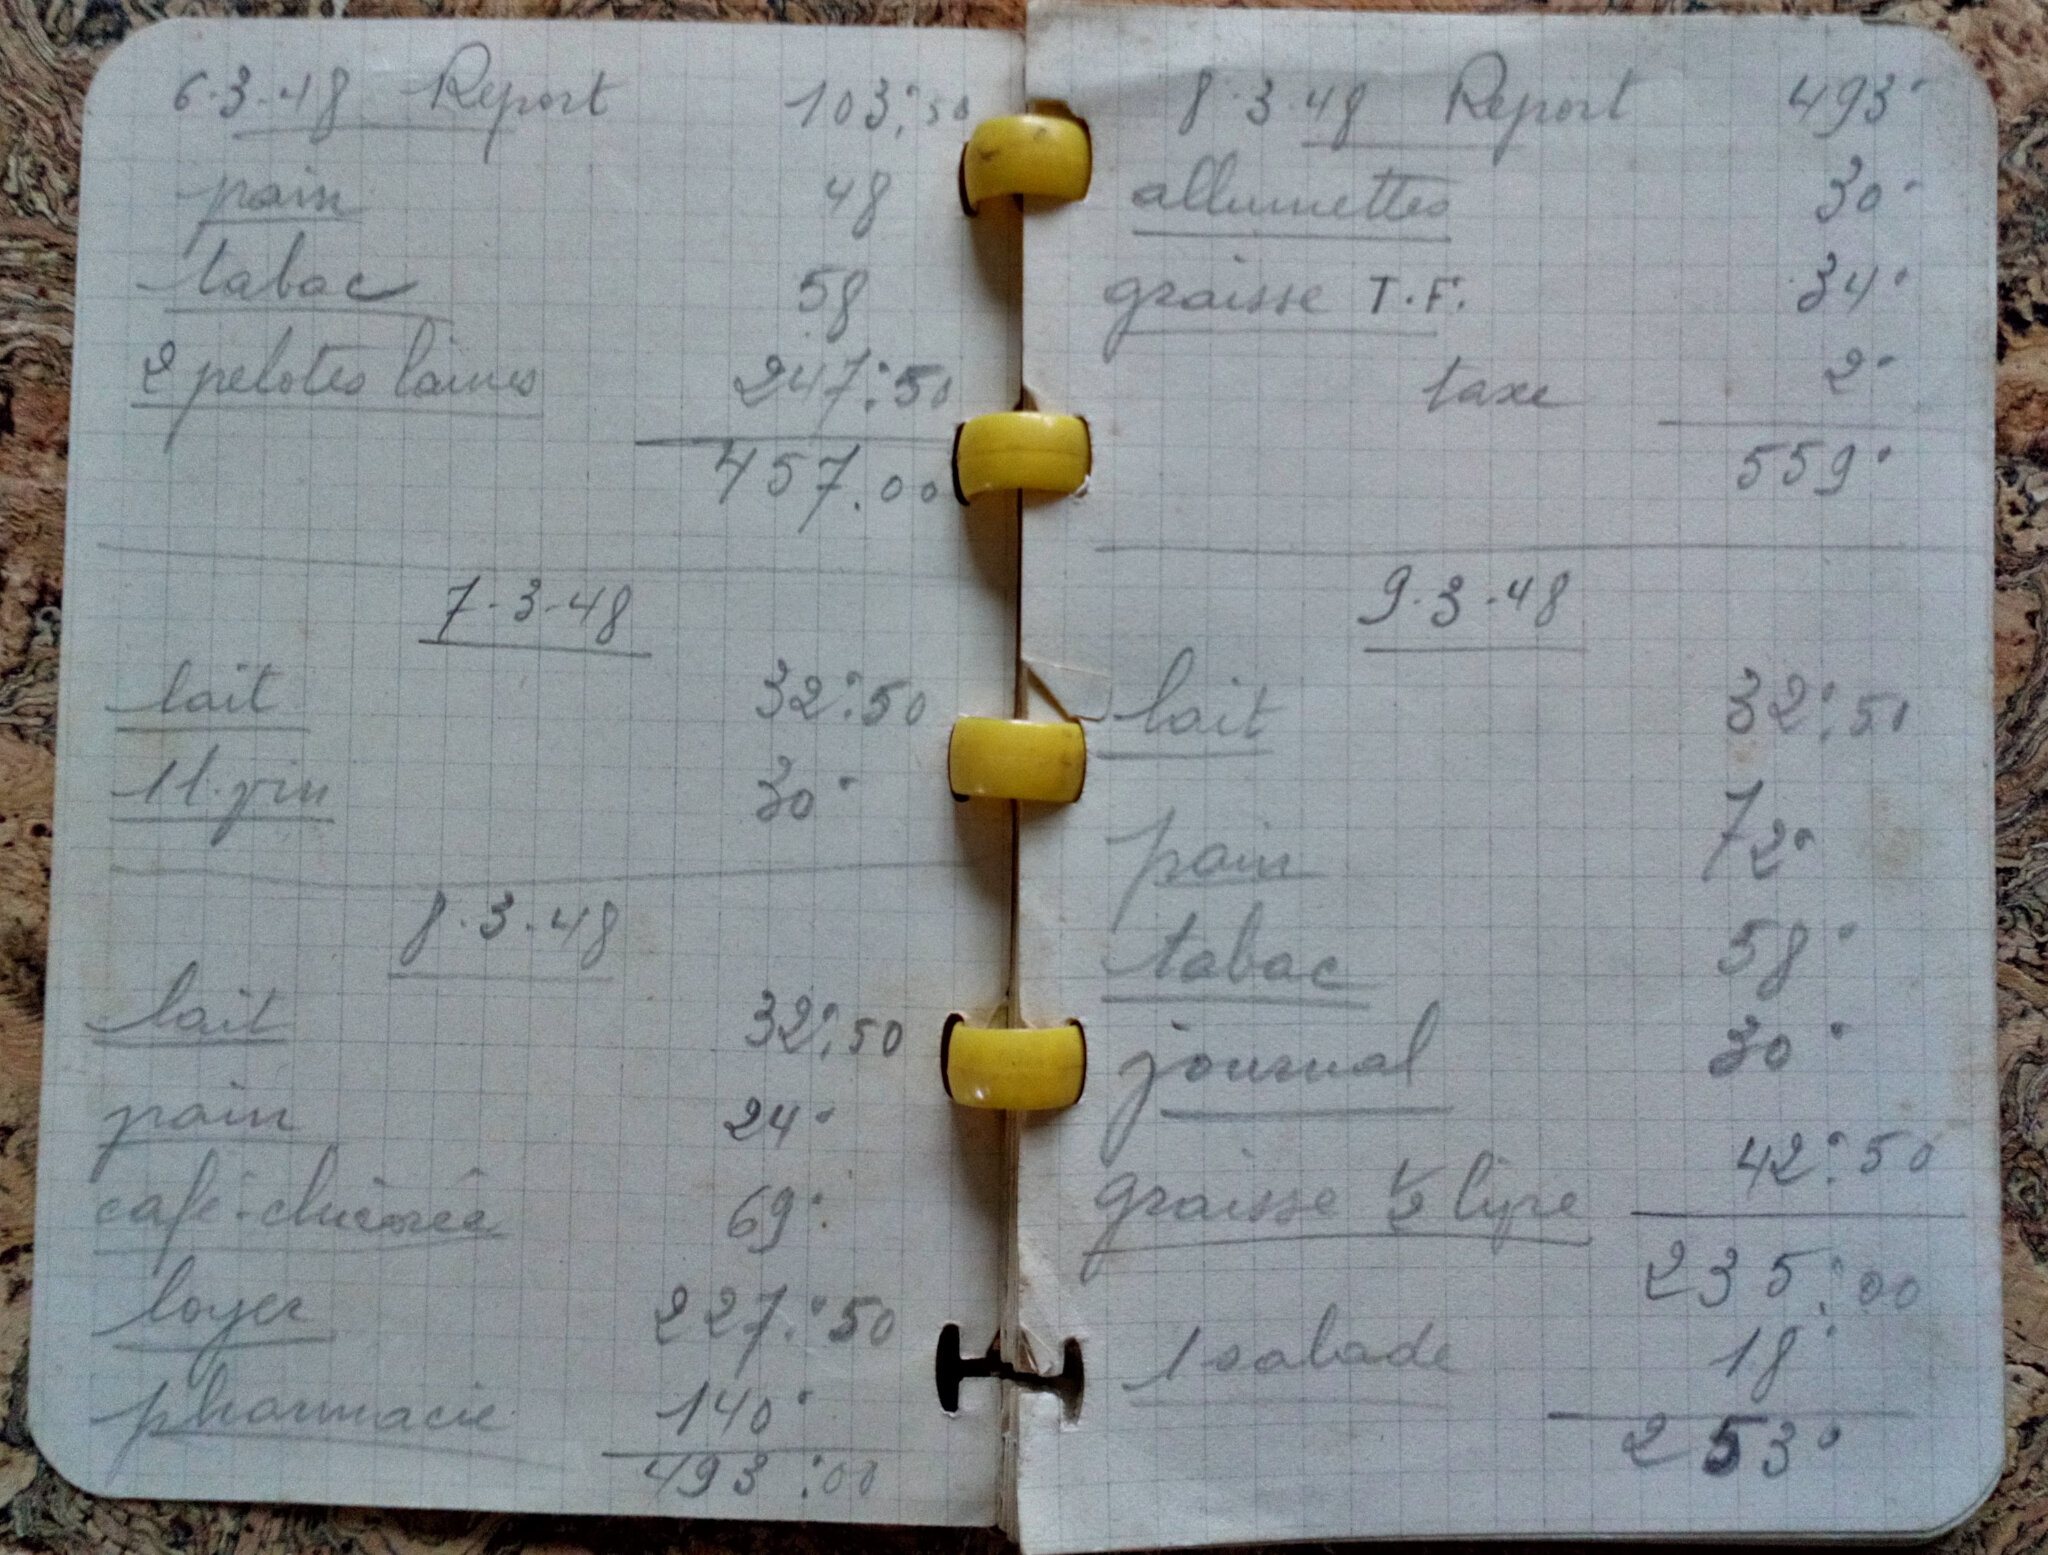 6.3.48 Report 103:50
pain 48
tabac 58
2 pelotes laines 247:50
457.00
7.3.48
lait 32:50
1 l. vin 30
8.3.48
lait 32:50
pain 24
café-chicorée 69
loyer 227:50
pharmacie 140
493:00
8.3.48 Report 493
allumettes 30
graisse T.F. 34
taxe 2
559
9.3.48
lait 32:50
pain 72
tabac 58
journal 30
graisse 1/2 livre 42:50
235:00
1 salade 18
253